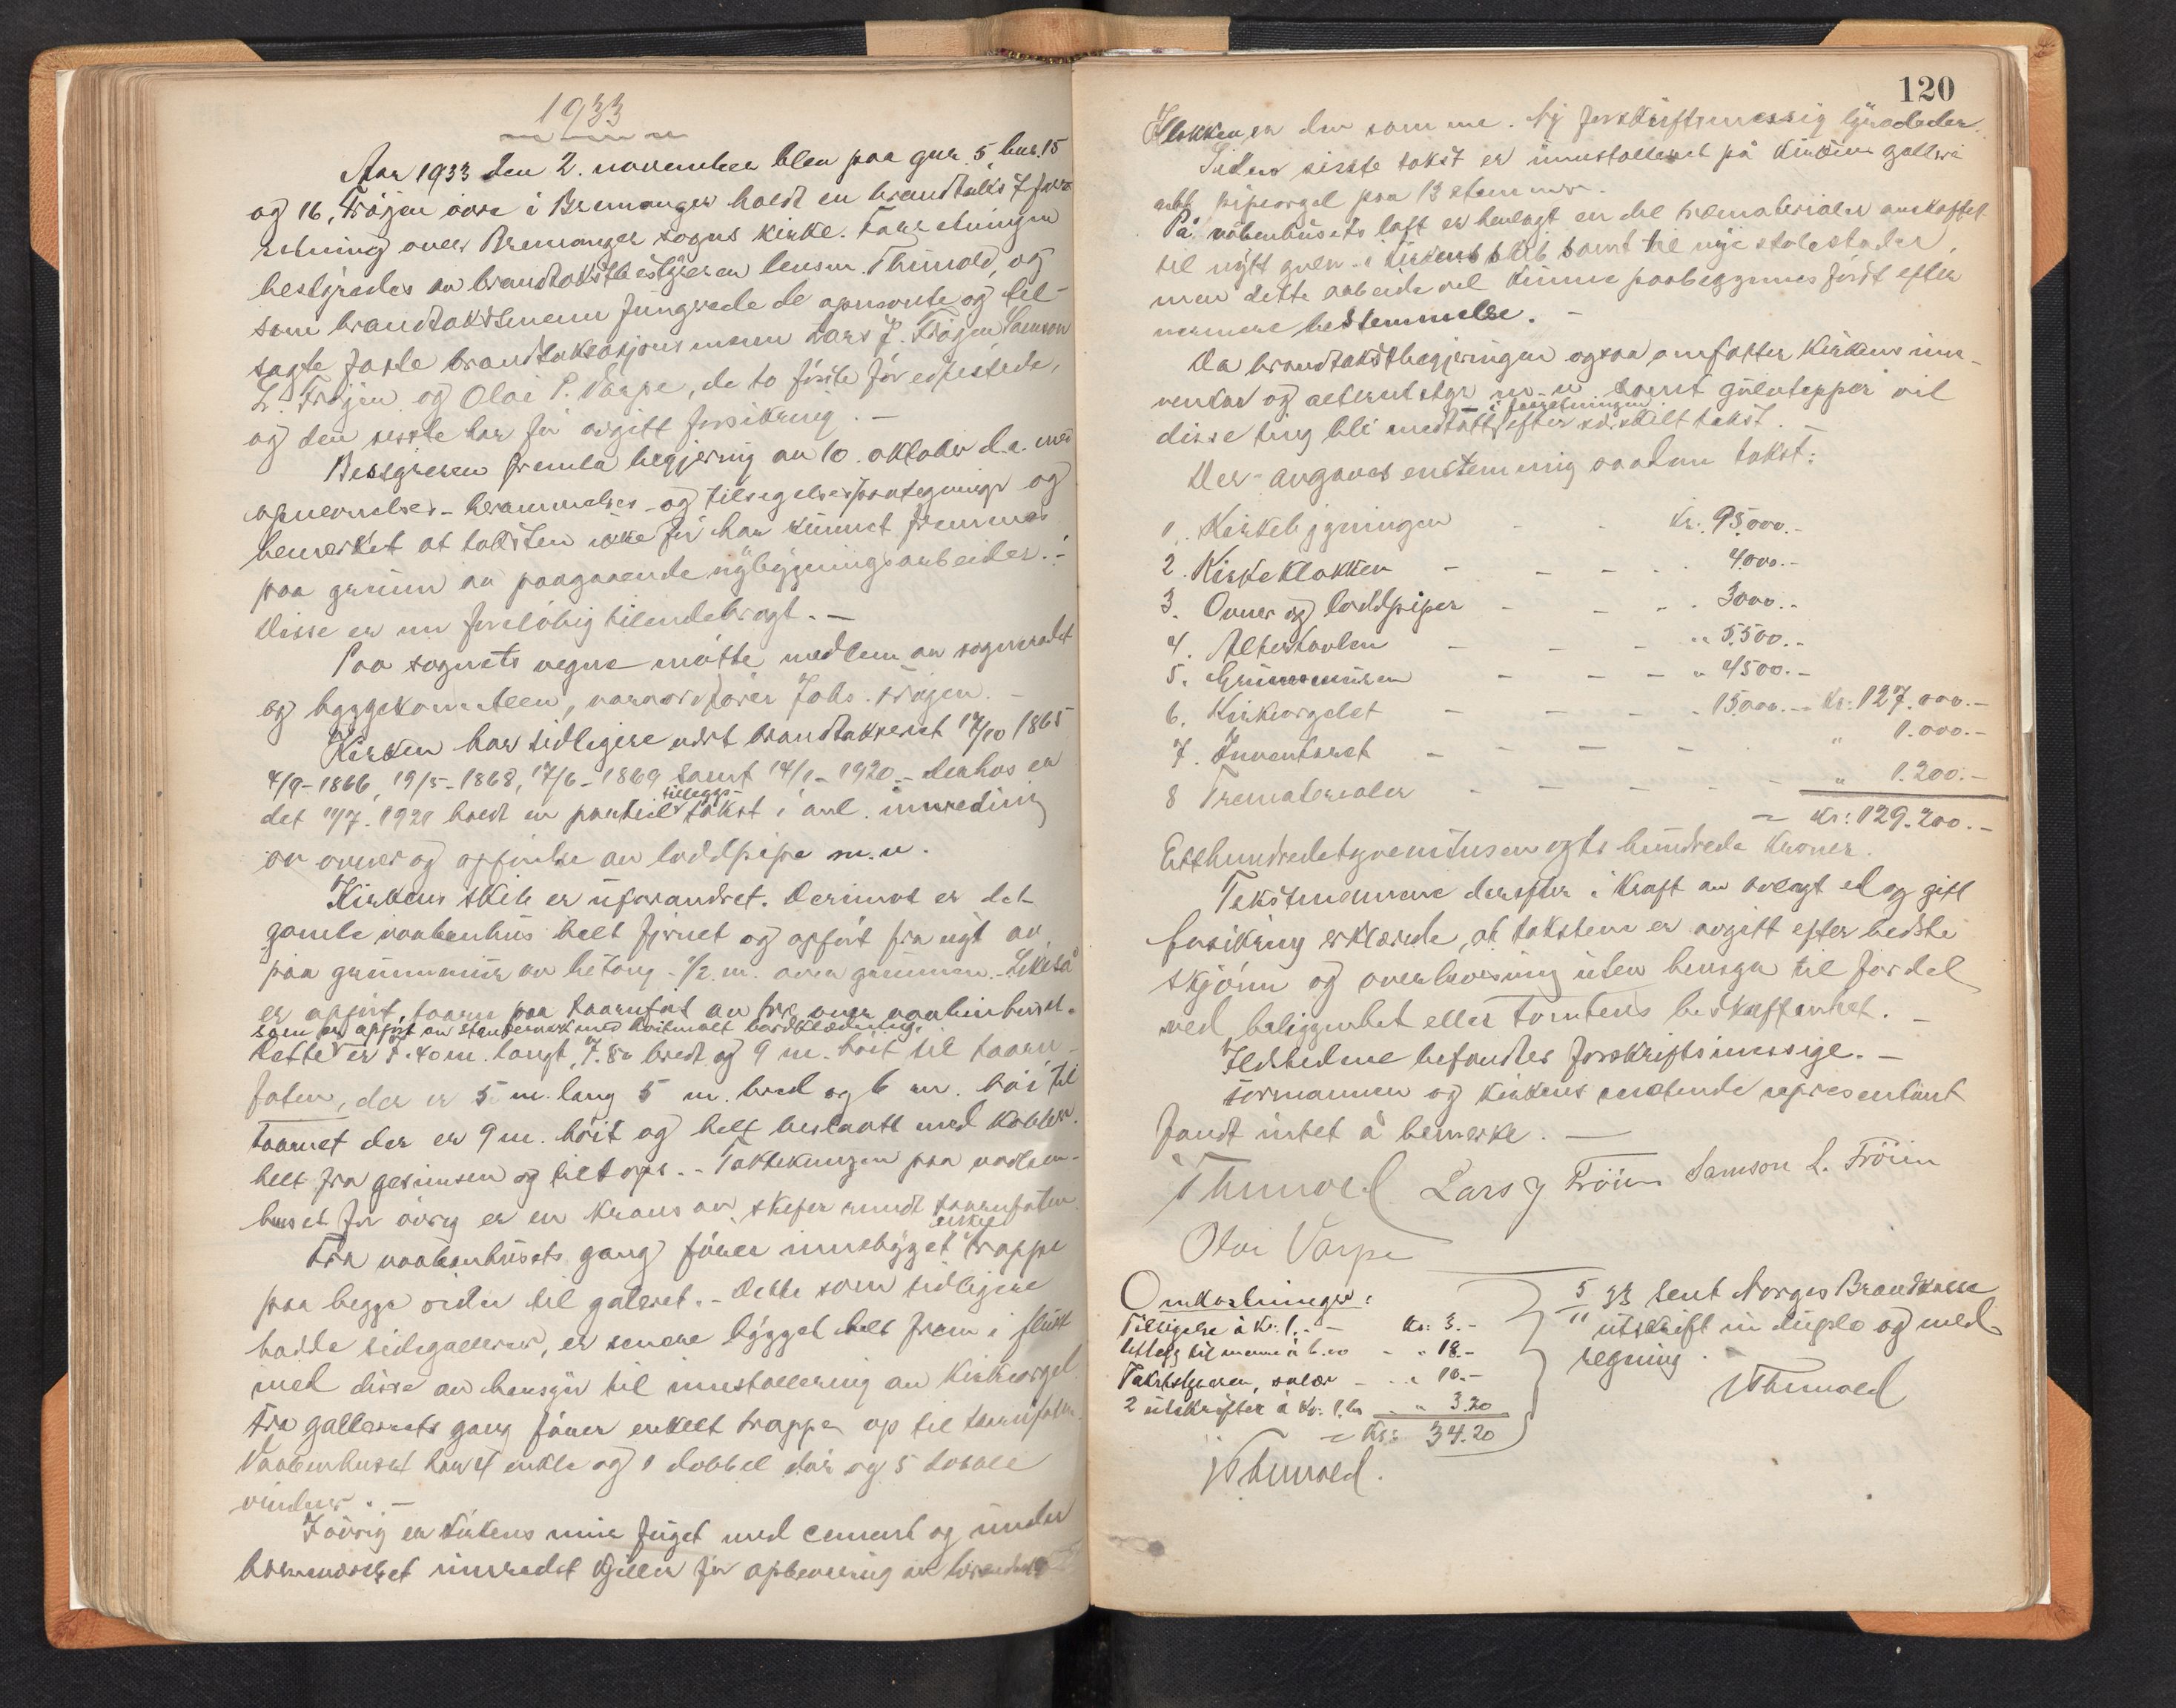 1933
Aar 1933 den 2. november blev paa gnr. 5, bnr. 15
og 16, Frøjen øvre i Bremanger holdt en brandtakstfor-
retning over Bremanger sogns kirke. Forretningen
bestyredes av brandtakstbestyreren lensm. Thunold, og
som brandtakstmenn fungerede de opnevnte og til-
sagte faste brandtakstasjonsmenn Lars J. Frøjen, Samson
L. Frøjen og Olai P. Varpe, de to første før edfestede,
og den sisste har før avgitt forsikring. -
Bestyreren fremla begjering av 10. oktober d.a. med
opnevnelses- berammelses- og tilsigelsespaategninger og
bemerket at taksten ikke før har kunnet fremmes
paa grunn av paagaaende nybygningsarbeider. -
Disse er nu foreløbig tilendebragt. -
Paa sognets vegne møtte medlem av sogneradet
og byggekomiteen, varaordfører Johs. Frøjen. -
Kirken har tidligere vært brandtakseret 17/10 1865
4/9-1866, 19/5-1868, 17/6-1869 samt 14/1-1920. - derhos er
tilleggs-
det 11/7. 1921 holdt en partiell takst i anl. innreding
av ovner og opførelse av loddpipe m.v.
Kirkens skib er uforandret. Derimot er det
gamle vaabenhus helt fjernet og opført fra nytt av
paa grunnmur av betong - 1/2 m. over grunnen. - Likeså
er opført, taarn paa taarnfot av tre over vaabenhuset.
som er opført av stenderverk med hvitmalt bordklædning.
Dette er 7.40 m. langt, 7.80 bredt og 9 m. høit til taarn-
foten, der er 5 m. lang 5 m. bred og 6 m. høi til
taarnet der er 9 m. høit og helt beslaatt med kobber.
helt fra gesimsen og til tops. - Taktekningen paa vaaben-
huset for øvrig er en krans av skifer rundt taarnfoten.
enkel
Fra vaabenhusets gang fører innebygget trappe
paa begge sider til galeriet. - Dette som tidligere
hadde sidegallerier, er senere bygget helt fram i flukt
med disse av hensyn til innstallering av kirkeorgel.
Fra galleriets gang fører enkelt trappe op til taarnfoten.
Vaabenhuset har 4 enkle og 1 dobbel dør og 5 doble
vinduer. -
Iøvrig er kirkens mur fuget med cement og under
innredet kjeller for opbevaring av brendsel
120
Klokken er den samme. Ny forskriftsmessig lynavleder.
Siden sisste takst er innstalleret på kirkens galleri
pipeorgel paa 13 stemmer.
På våbenhusets loft er henlagt en del trematerialer anskaffet
til nytt gulv i kirkens skib samt til nye stolestader,
men dette arbeide vil kunne paabegynnes først efter
nærmere bestemmelse. -
Da brandtakstbegjeringen ogsaa omfatter kirkens inn-
ventar og alterutstyr m.v. samt gulvtepper vil
i forretningen
disse ting bli medtatt efter særskilt takst. -
Der avgaves enstemmig saadan takst:
1. Kirkebygningen - - Kr. 95.000.-
2. Kirkeklokken - - - - 4.000.-
3. Ovner og loddpiper - - - - 3000.-
4. Altertavlen - - - " 5.500.-
5. Grunnmuren - - - " 4500.-
6. Kirkeorgelet - - - - 15.000.- Kr. 127.000.-
7. Inventaret - - - - " 1.000.-
8 Trematerialer - - - - " 1.200.-
= Kr: 129.200.-
Etthundredetyvenitusen og to hundrede kroner.
Takstmennene derefter i kraft av avlagt ed og gitt
forsikring erklærede, at taksten er avgitt efter bedste
skjønn og overbevisning uten hensyn til fordel
ved beliggenhet eller tomtens beskaffenhet. -
Ildstedene befandtes forskriftsmessige. -
Formannen og kirkens møtende representant
fandt intet å bemerke. -
Thunold Lars J Frøien Samson L. Frøien
Olai Varpe
Omkostninger:
Tilsigelse à Kr. 1.- - Kr: 3.-
Utlegg til menn à 6.00 - " 18.-
Takstbestyreren, salær - - " 10.-
2 utskrifter à Kr. 1.60 - " 3.20
= Kr: 34.20
Thunold.
5/11 33 sent Norges Brandkasse
utskrift in duplo og med
regning.
Thunold